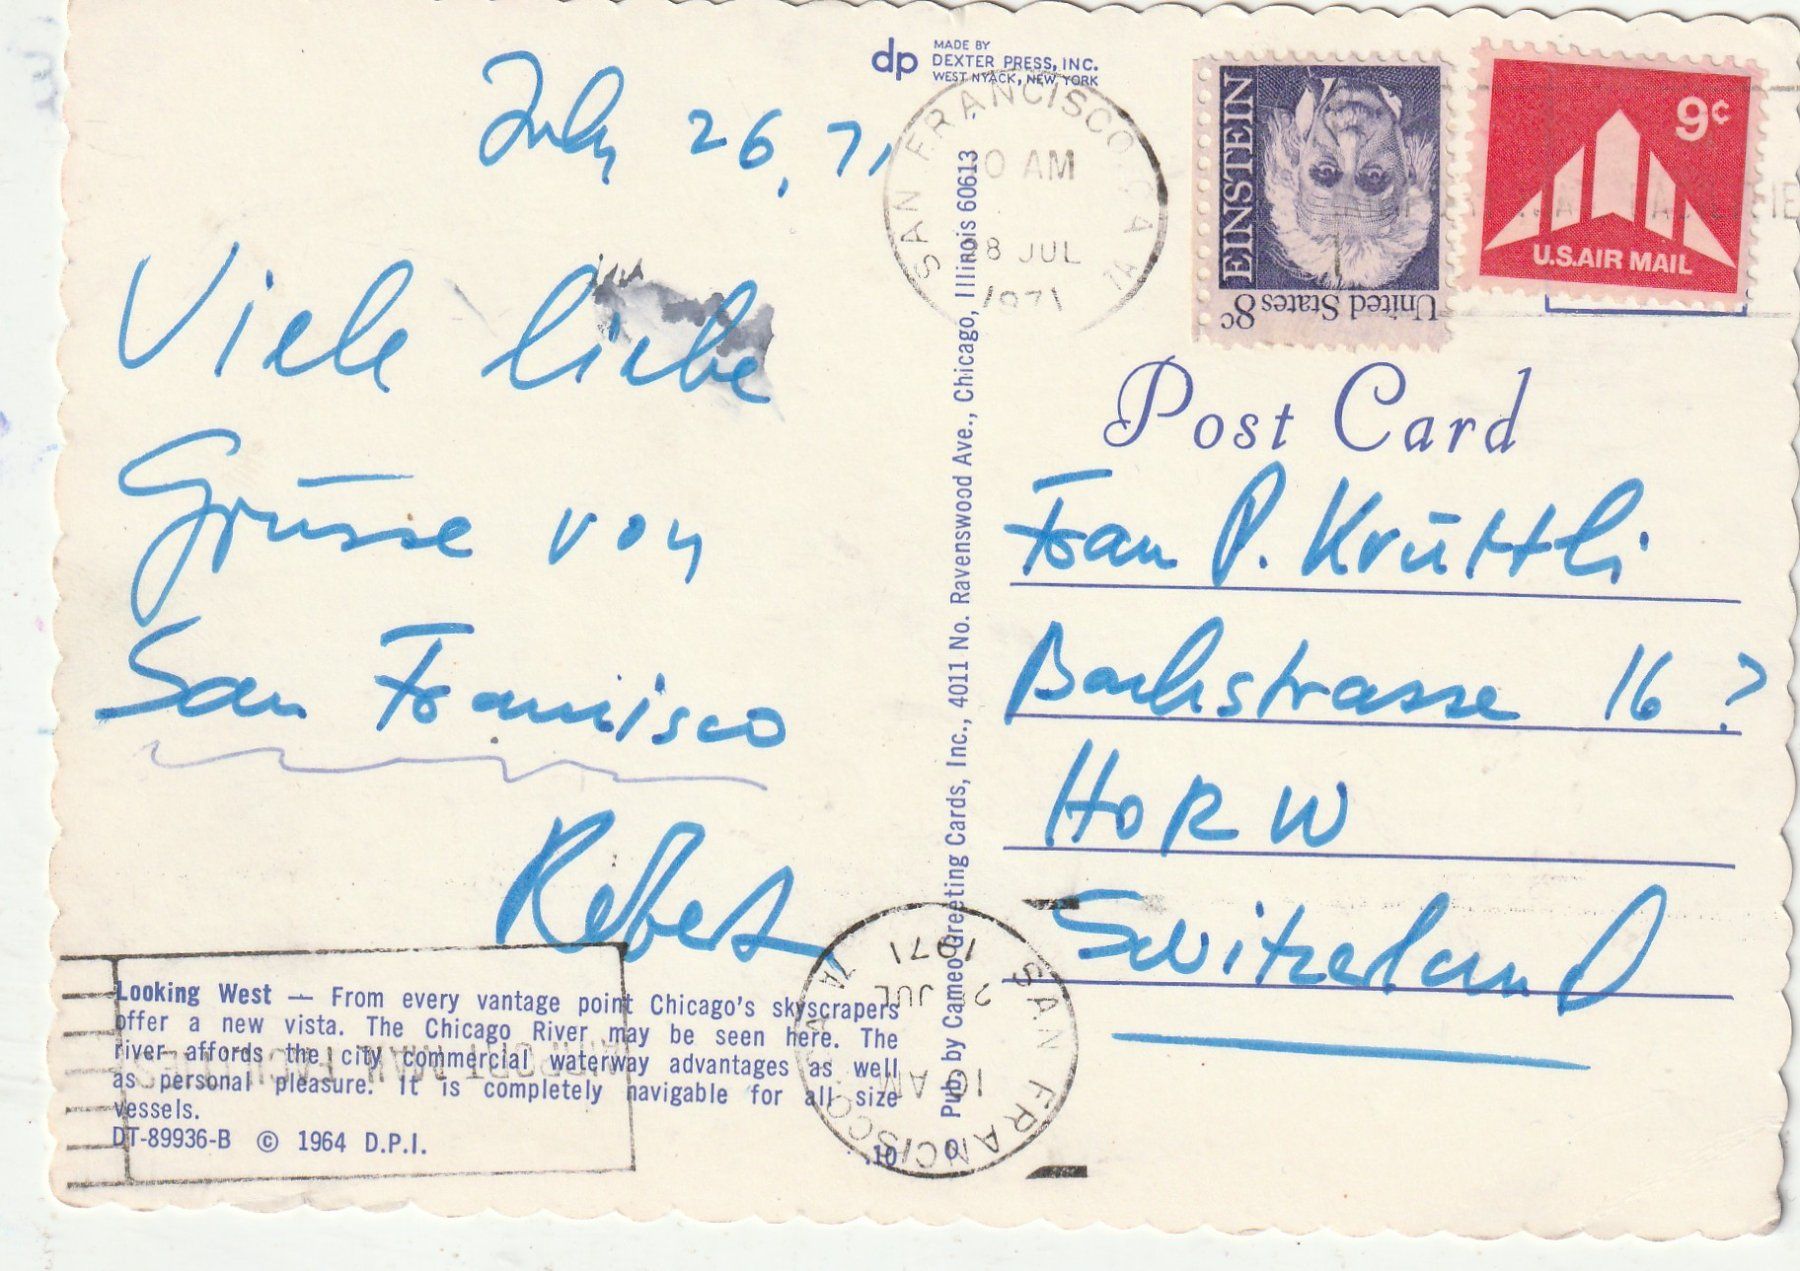 July 26, 71
Viele liebe
Grüsse von
San Francisco
Robert
Looking West — From every vantage point Chicago's skyscrapers
offer a new vista. The Chicago River may be seen here. The
river affords the city commercial waterway advantages as well
as personal pleasure. It is completely navigable for all size
vessels.
DT-89936-B © 1964 D.P.I.
dp
MADE BY
DEXTER PRESS, INC.
WEST NYACK, NEW YORK
Pub. by Cameo Greeting Cards, Inc., 4011 No. Ravenswood Ave., Chicago, Illinois 60613
SAN FRANCISCO, CA
AM
JUL
1971
EINSTEIN
United States 8c
9c
U.S. AIR MAIL
Post Card
Frau P. Krüttli
Bachstrasse 16 ?
HORW
Switzerland
SAN FRANCISCO
10 AM
JUL
1971
AIRPORT MAIL FACILITIES